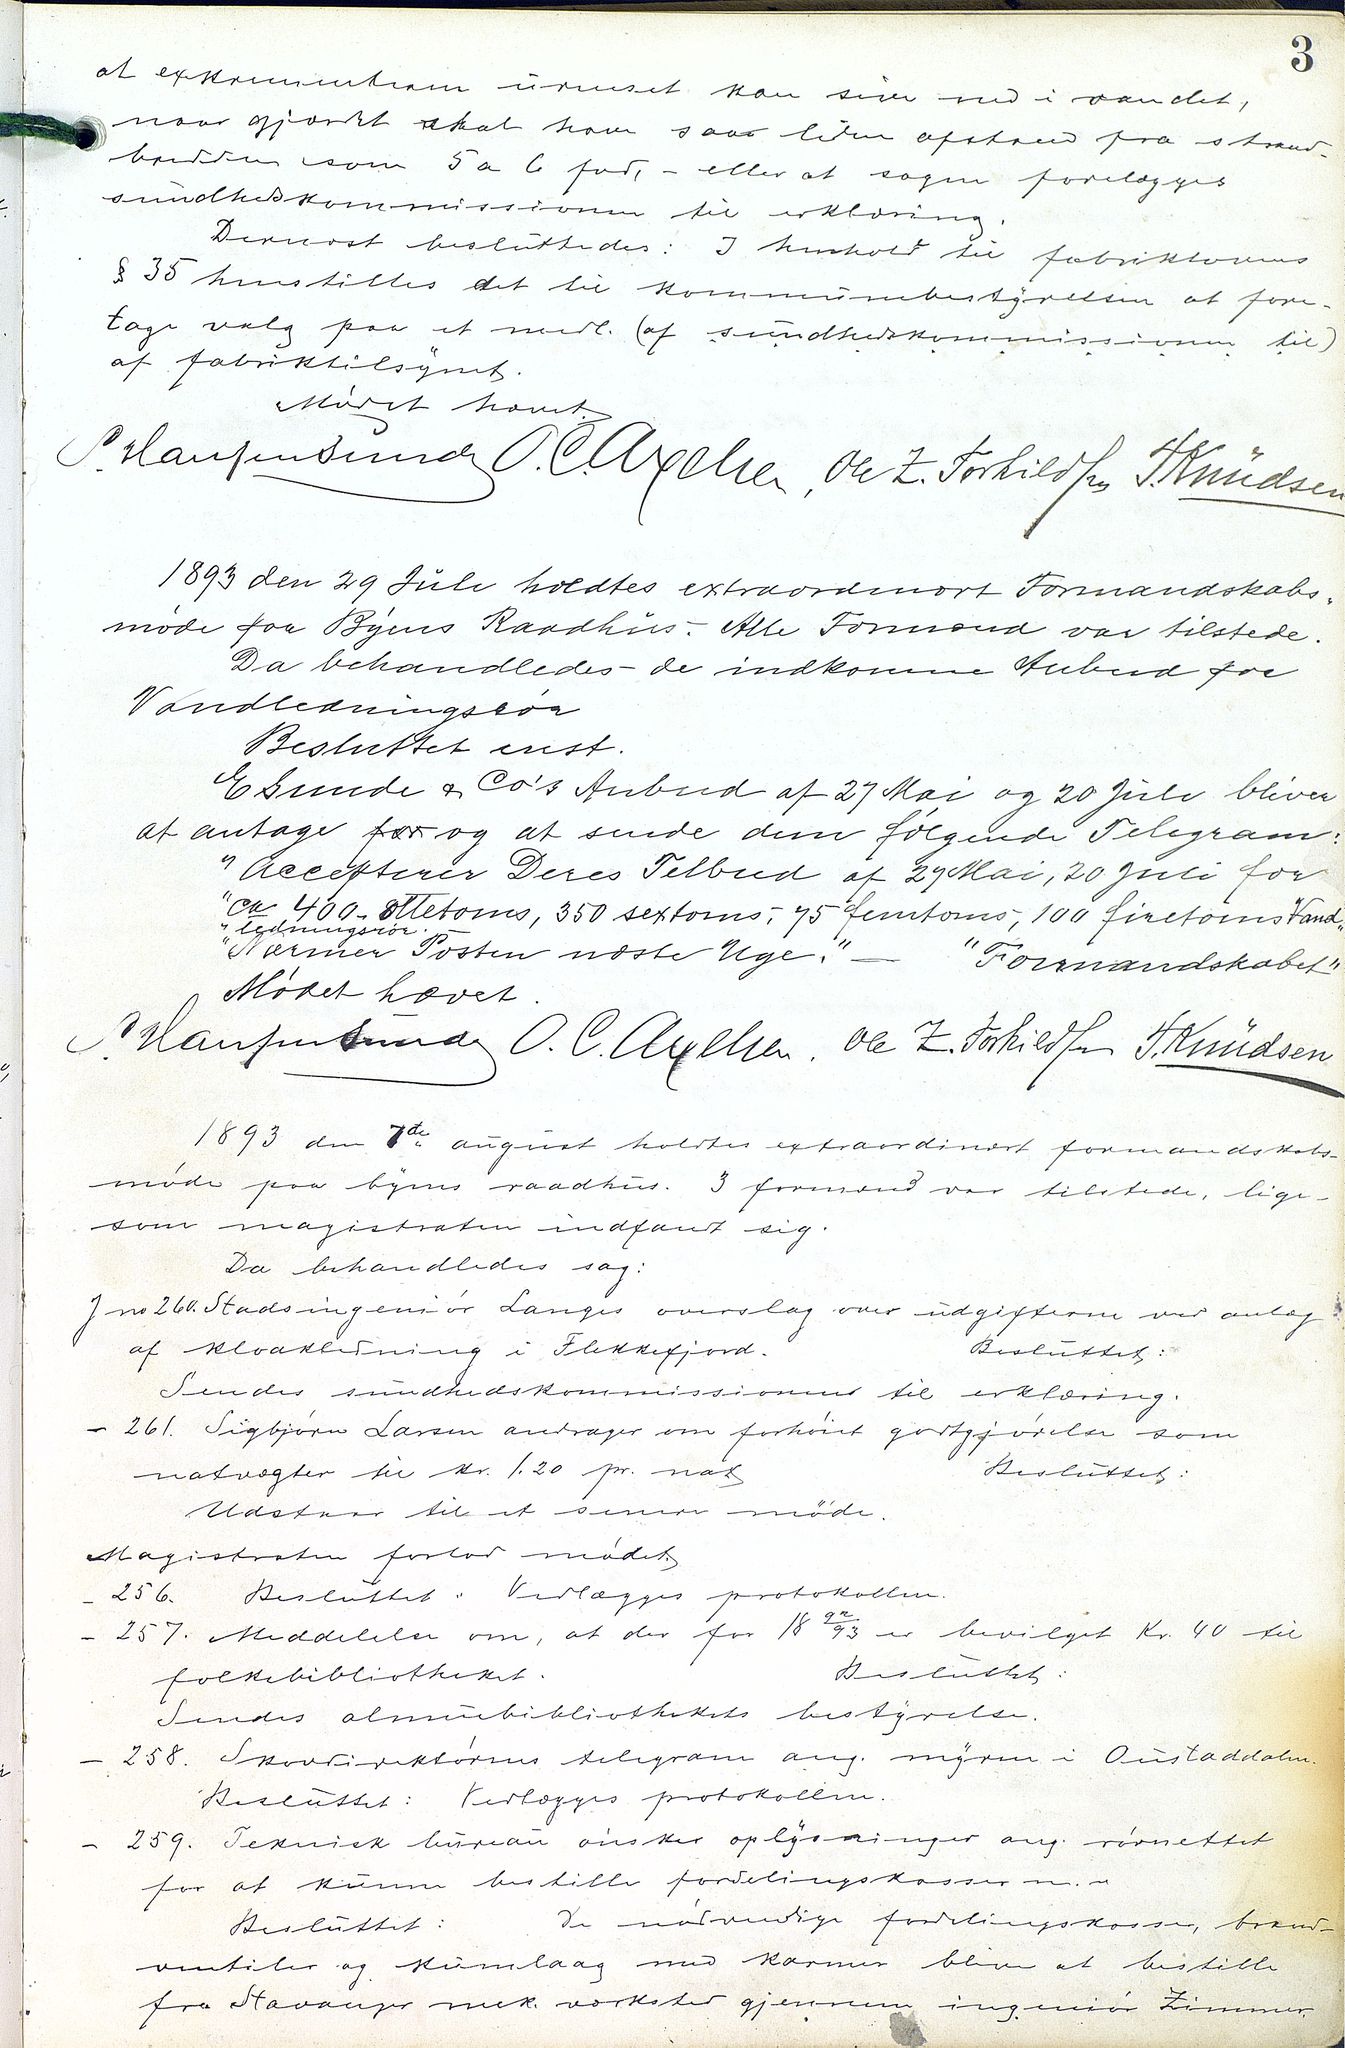 3
at exkrementerne urenset kan sive ned i vandet,
naar gjærdet skal have saa liden afstand fra strand-
bredden som 5 a 6 fod, - eller at sagen forelægges
sundhedskommissionen til erklæring.
Dernæst besluttedes: I henhold til fabriklovens
§ 35 henstilles det til kommunebestyrelsen at fore-
tage valg paa et medl. (af sundhedskommissionen til)
af fabriktilsynet.
Mødet hævet.
P. Hansen Sunde O. C. Axelsen, Ole Z. Torkildsen T. Knudsen
1893 den 29 Juli holdtes extraordinært Formandskabs-
møde paa Byens Raadhus. Alle Formænd var tilstede.
Da behandledes de indkomne Anbud for
Vandledningsrør
Besluttet enst.
E Sunde & Co's Anbud af 27 Mai og 20 Juli bliver
at antage for og at sende dem følgende Telegram:
"Accepterer Deres Tilbud af 27 Mai, 20 Juli for
"ca 400 ottetoms, 350 sextoms, 75 femtoms, 100 firetoms Vand-
"ledningsrør.
"Nærmer Posten næste Uge." — "Formandskabet"
Mødet hævet.
P. Hansen Sunde O. C. Axelsen, Ole Z. Torkildsen T. Knudsen
1893 den 7de august holdtes extraordinært formandskabs-
møde paa byens raadhus. 3 formænd var tilstede, lige-
som magistraten indfandt sig.
Da behandledes sag:
J no 260. Stadsingeniør Langes overslag over udgifterne ved anlæg
af kloakledning i Flekkefjord. Besluttet:
Sendes sundhedskommissionens til erklæring.
- 261. Sigbjørn Larsen andrager om forhøiet godtgjørelse som
natvægter til kr. 1.20 pr. nat Besluttet:
Udstaar til et senere møde.
Magistraten forlod mødet.
- 256. Besluttet: Vedlægges protokollen.
- 257. Meddelelse om, at der for 18 92/93 er bevilget Kr. 40 til
folkebibliotheket. Besluttet:
Sendes almuebibliothekets bestyrelse.
- 258. Skovdirektørens telegram ang. myren i Oustaddalen.
Besluttet: Vedlægges protokollen.
- 259. Teknisk bureau ønsker oplysninger ang. rørnettet
for at kunne bestille fordelingskasser m.
Besluttet: De nødvendige fordelingskasser, brand-
ventiler og kumlaag med karmer bliver at bestille
fra Stavanger mek. værksted gjennem ingeniør Zimmer.